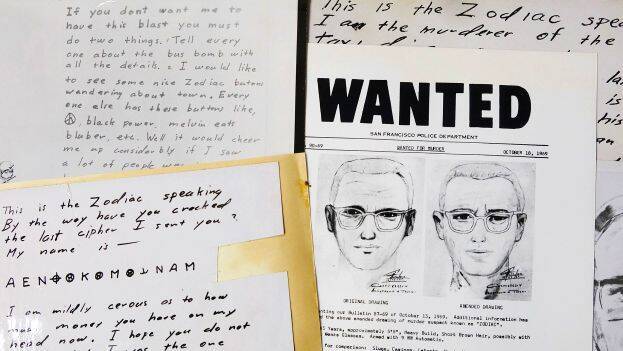 If you dont want me to
have this blast you must
do two things. Tell every
one about the bus bomb with
all the details. 2 I would like
to see some nice Zodiac butons
wandering about town. Every
one else has these buttons like,
black power, melvin eats
bluber, etc. Well it would cheer
me up considerbly if I saw
a lot of people
This is the Zodiac speaking
By the way have you cracked
the last cipher I sent you ?
My name is —
A E N ⊕ K M NAM
I am mildly cerous as to how
money you have on my
head now. I hope you do not
I was the one
This is the Zodiac
I am the murderer of the
WANTED
SAN FRANCISCO POLICE DEPARTMENT
90-69
WANTED FOR MURDER
OCTOBER 18, 1969
ORIGINAL DRAWING
AMENDED DRAWING
our Bulletin 87-69 of October 13, 1969. Additional information has
the above amended drawing of murder suspect known as "ZODIAC".
Years, approximately 5'8", Heavy Build, Short Brown Hair, possibly with
Glasses. Armed with 9 MM Automatic.
for comparison: Slugs, Casings,
is